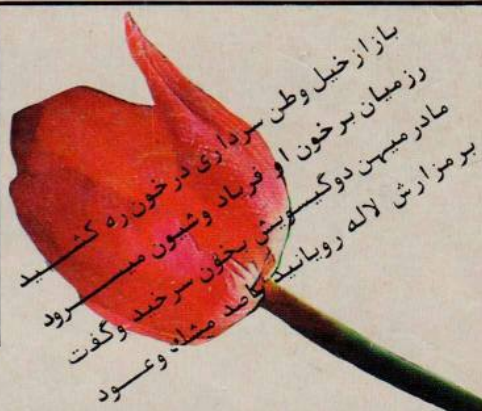 باز از خیل وطن سرداری در خون ره کشید
رزمیان بر خون او فریاد و شیون میرود
مادر میهن دو گیسویش بخون سر خید وگفت
بر مزارش لاله رویانید صد مشک وعود